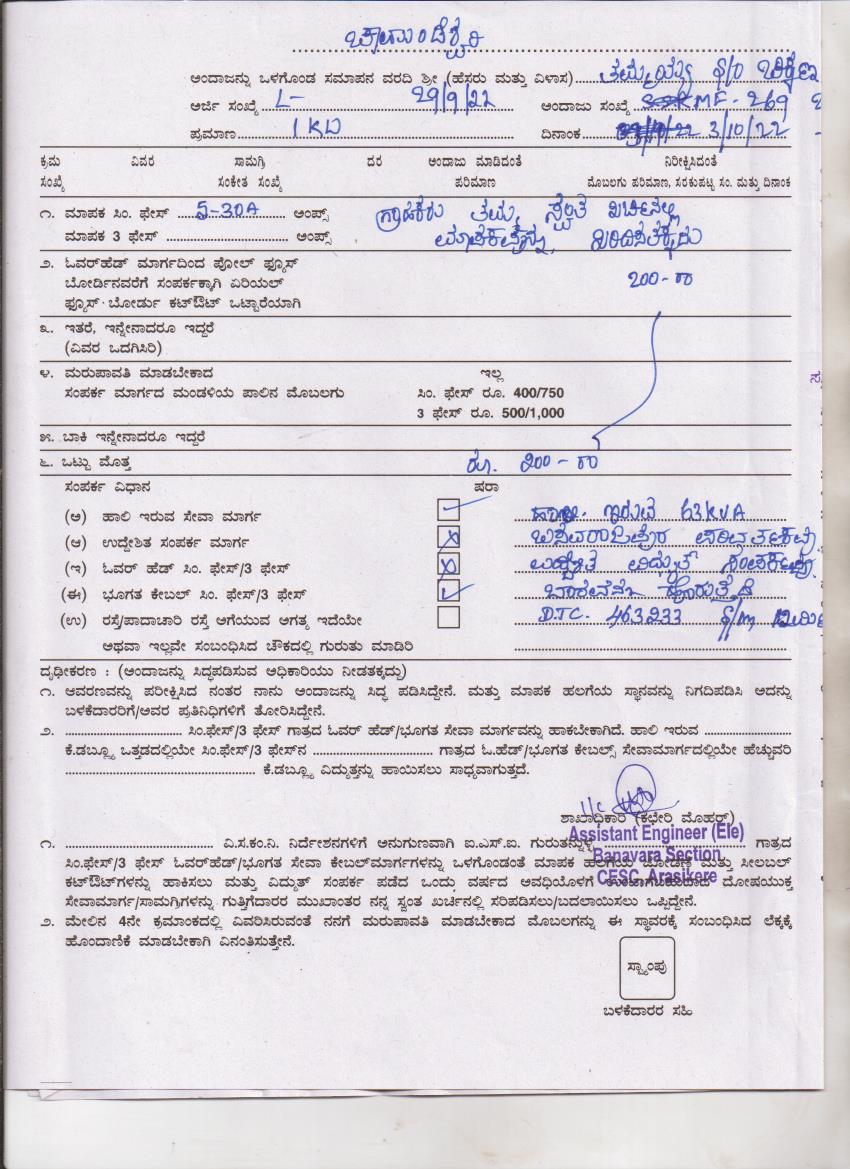 ಚಾಮುಂಡೇಶ್ವರಿ
ಅಂದಾಜನ್ನು ಒಳಗೊಂಡ ಸಮಾಪನ ವರದಿ ಶ್ರೀ (ಹೆಸರು ಮತ್ತು ವಿಳಾಸ) ತಮ್ಮಯ್ಯ S/O
ಅರ್ಜಿ ಸಂಖ್ಯೆ L- 29/9/22 ಅಂದಾಜು ಸಂಖ್ಯೆ KMF-269
ಪ್ರಮಾಣ 1 KW ದಿನಾಂಕ 3/10/22
ಕ್ರಮ ವಿವರ ಸಾಮಗ್ರಿ ದರ ಅಂದಾಜು ಮಾಡಿದಂತೆ ನಿರೀಕ್ಷಿಸಿದಂತೆ
ಸಂಖ್ಯೆ ಸಂಕೇತ ಸಂಖ್ಯೆ ಪರಿಮಾಣ ಮೊಬಲಗು ಪರಿಮಾಣ, ಸರಕುಪಟ್ಟಿ ಸಂ. ಮತ್ತು ದಿನಾಂಕ
೧. ಮಾಪಕ ಸಿಂ. ಫೇಸ್ 5-30A ಆಂಪ್ಸ್ ಗ್ರಾಹಕರು ತಮ್ಮ ಸ್ವಂತ ಖರ್ಚಿನಲ್ಲಿ
ಮಾಪಕ 3 ಫೇಸ್ ಆಂಪ್ಸ್ ಮಾಪಕವನ್ನು ಖರೀದಿಸತಕ್ಕದ್ದು
೨. ಓವರ್‌ಹೆಡ್ ಮಾರ್ಗದಿಂದ ಪೋಲ್ ಫ್ಯೂಸ್
ಬೋರ್ಡಿನವರೆಗೆ ಸಂಪರ್ಕಕ್ಕಾಗಿ ಏರಿಯಲ್ 200-00
ಫ್ಯೂಸ್ ಬೋರ್ಡು ಕಟ್‌ಔಟ್ ಒಟ್ಟಾರೆಯಾಗಿ
೩. ಇತರೆ, ಇನ್ನೇನಾದರೂ ಇದ್ದರೆ
(ವಿವರ ಒದಗಿಸಿರಿ)
೪. ಮರುಪಾವತಿ ಮಾಡಬೇಕಾದ ಇಲ್ಲ
ಸಂಪರ್ಕ ಮಾರ್ಗದ ಮಂಡಳಿಯ ಪಾಲಿನ ಮೊಬಲಗು ಸಿಂ. ಫೇಸ್ ರೂ. 400/750
3 ಫೇಸ್ ರೂ. 500/1,000
೫. ಬಾಕಿ ಇನ್ನೇನಾದರೂ ಇದ್ದರೆ
೬. ಒಟ್ಟು ಮೊತ್ತ ರೂ. 200-00
ಸಂಪರ್ಕ ವಿಧಾನ ಷರಾ
(ಅ) ಹಾಲಿ ಇರುವ ಸೇವಾ ಮಾರ್ಗ ಹಾಲಿ ಇರುವ 63KVA
(ಆ) ಉದ್ದೇಶಿತ ಸಂಪರ್ಕ ಮಾರ್ಗ ಬಸವರಾಜಪುರ ಪರಿವರ್ತಕವು
(ಇ) ಓವರ್ ಹೆಡ್ ಸಿಂ. ಫೇಸ್/3 ಫೇಸ್ ಉದ್ದೇಶಿತ ವಿದ್ಯುತ್ ಸಂಪರ್ಕವು
(ಈ) ಭೂಗತ ಕೇಬಲ್ ಸಿಂ. ಫೇಸ್/3 ಫೇಸ್ ಹೊರುತ್ತದೆ
(ಉ) ರಸ್ತೆ/ಪಾದಾಚಾರಿ ರಸ್ತೆ ಅಗೆಯುವ ಅಗತ್ಯ ಇದೆಯೇ DTC. 463233 S/m,
ಅಥವಾ ಇಲ್ಲವೇ ಸಂಬಂಧಿಸಿದ ಚೌಕದಲ್ಲಿ ಗುರುತು ಮಾಡಿರಿ
ದೃಢೀಕರಣ : (ಅಂದಾಜನ್ನು ಸಿದ್ದಪಡಿಸುವ ಅಧಿಕಾರಿಯು ನೀಡತಕ್ಕದ್ದು)
೧. ಆವರಣವನ್ನು ಪರೀಕ್ಷಿಸಿದ ನಂತರ ನಾನು ಅಂದಾಜನ್ನು ಸಿದ್ಧ ಪಡಿಸಿದ್ದೇನೆ. ಮತ್ತು ಮಾಪಕ ಹಲಗೆಯ ಸ್ಥಾನವನ್ನು ನಿಗದಿಪಡಿಸಿ ಅದನ್ನು
ಬಳಕೆದಾರರಿಗೆ/ಅವರ ಪ್ರತಿನಿಧಿಗಳಿಗೆ ತೋರಿಸಿದ್ದೇನೆ.
೨. ಸಿಂ.ಫೇಸ್/3 ಫೇಸ್ ಗಾತ್ರದ ಓವರ್ ಹೆಡ್/ಭೂಗತ ಸೇವಾ ಮಾರ್ಗವನ್ನು ಹಾಕಬೇಕಾಗಿದೆ. ಹಾಲಿ ಇರುವ
ಕೆ.ಡಬ್ಲ್ಯೂ ಒತ್ತಡದಲ್ಲಿಯೇ ಸಿಂ.ಫೇಸ್/3 ಫೇಸ್‌ನ ಗಾತ್ರದ ಓ.ಹೆಡ್/ಭೂಗತ ಕೇಬಲ್ಸ್ ಸೇವಾಮಾರ್ಗದಲ್ಲಿಯೇ ಹೆಚ್ಚುವರಿ
ಕೆ.ಡಬ್ಲ್ಯೂ ವಿದ್ಯುತ್ತನ್ನು ಹಾಯಿಸಲು ಸಾಧ್ಯವಾಗುತ್ತದೆ.
ಶಾಖಾಧಿಕಾರಿ (ಕಛೇರಿ ಮೊಹರ್)
Assistant Engineer (Ele)
Banavara Section
CESC, Arasikere
೧. ವಿ.ಸ.ಕಂ.ನಿ. ನಿರ್ದೇಶನಗಳಿಗೆ ಅನುಗುಣವಾಗಿ ಐ.ಎಸ್.ಐ. ಗುರುತನ್ನುಳ್ಳ ಗಾತ್ರದ
ಸಿಂ.ಫೇಸ್/3 ಫೇಸ್ ಓವರ್‌ಹೆಡ್/ಭೂಗತ ಸೇವಾ ಕೇಬಲ್‌ಮಾರ್ಗಗಳನ್ನು ಒಳಗೊಂಡಂತೆ ಮಾಪಕ ಹಲಗೆಯ ಜೋಡಣೆ ಮತ್ತು ಸೀಲಬಲ್
ಕಟ್‌ಔಟ್‌ಗಳನ್ನು ಹಾಕಿಸಲು ಮತ್ತು ವಿದ್ಯುತ್ ಸಂಪರ್ಕ ಪಡೆದ ಒಂದು ವರ್ಷದ ಅವಧಿಯೊಳಗೆ ಉಂಟಾಗಬಹುದಾದ ದೋಷಯುಕ್ತ
ಸೇವಾಮಾರ್ಗ/ಸಾಮಗ್ರಿಗಳನ್ನು ಗುತ್ತಿಗೆದಾರರ ಮುಖಾಂತರ ನನ್ನ ಸ್ವಂತ ಖರ್ಚಿನಲ್ಲಿ ಸರಿಪಡಿಸಲು/ಬದಲಾಯಿಸಲು ಒಪ್ಪಿದ್ದೇನೆ.
೨. ಮೇಲಿನ 4ನೇ ಕ್ರಮಾಂಕದಲ್ಲಿ ವಿವರಿಸಿರುವಂತೆ ನನಗೆ ಮರುಪಾವತಿ ಮಾಡಬೇಕಾದ ಮೊಬಲಗನ್ನು ಈ ಸ್ಥಾವರಕ್ಕೆ ಸಂಬಂಧಿಸಿದ ಲೆಕ್ಕಕ್ಕೆ
ಹೊಂದಾಣಿಕೆ ಮಾಡಬೇಕಾಗಿ ವಿನಂತಿಸುತ್ತೇನೆ.
ಸ್ಟ್ಯಾಂಪು
ಬಳಕೆದಾರರ ಸಹಿ